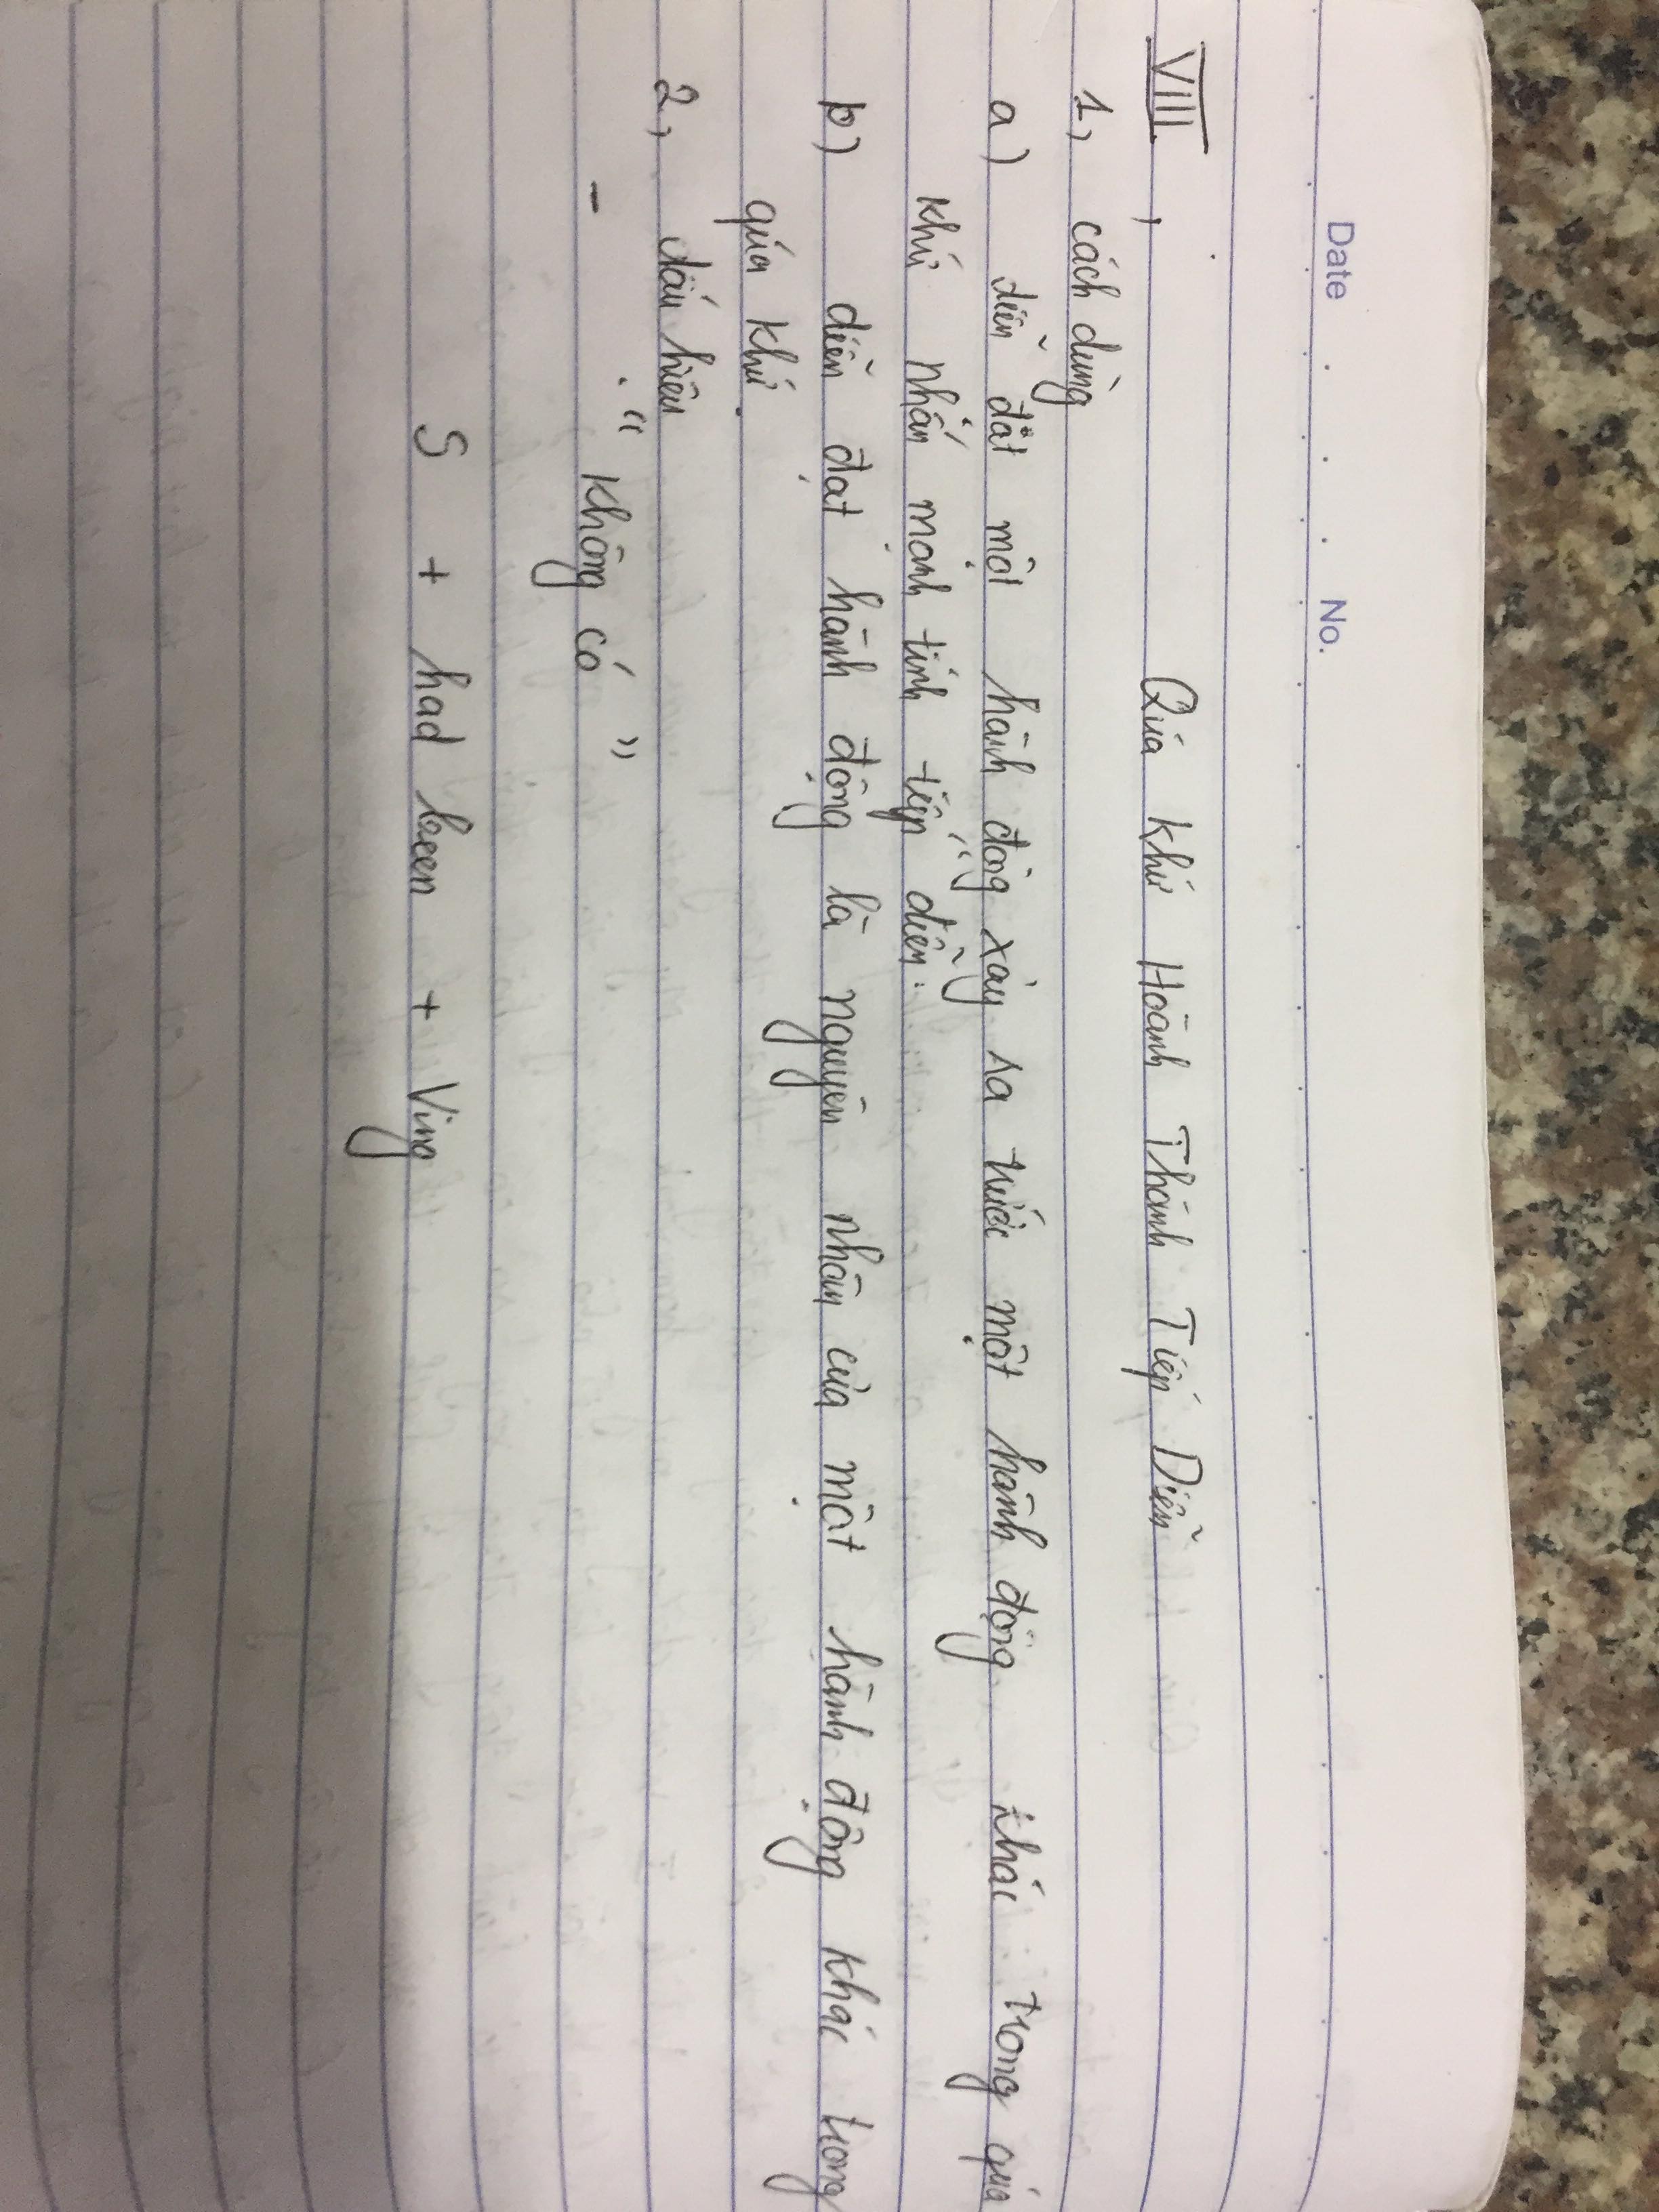 Date . . . . No.
VIII, Quá khứ Hoành Thành Tiếp Diễn
1, cách dùng
a) diễn đạt một hành động xảy ra trước một hành động khác trong quá
khứ nhấn mạnh tính tiếp diễn.
b) diễn đạt hành động là nguyên nhân của một hành động khác trong
quá khứ.
2, dấu hiệu
- "không có"
S + had been + Ving